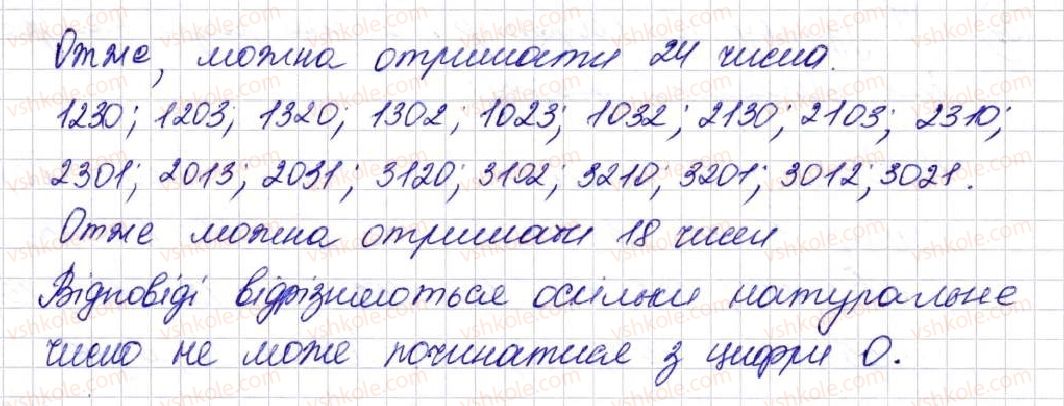 Отже, можна отримати 24 числа.
1230; 1203; 1320; 1302; 1023; 1032; 2130; 2103; 2310;
2301; 2013; 2031; 3120; 3102; 3210; 3201; 3012; 3021.
Отже можна отримати 18 чисел
Відповіді відрізняються оскільки натуральне
число не може починатися з цифри 0.